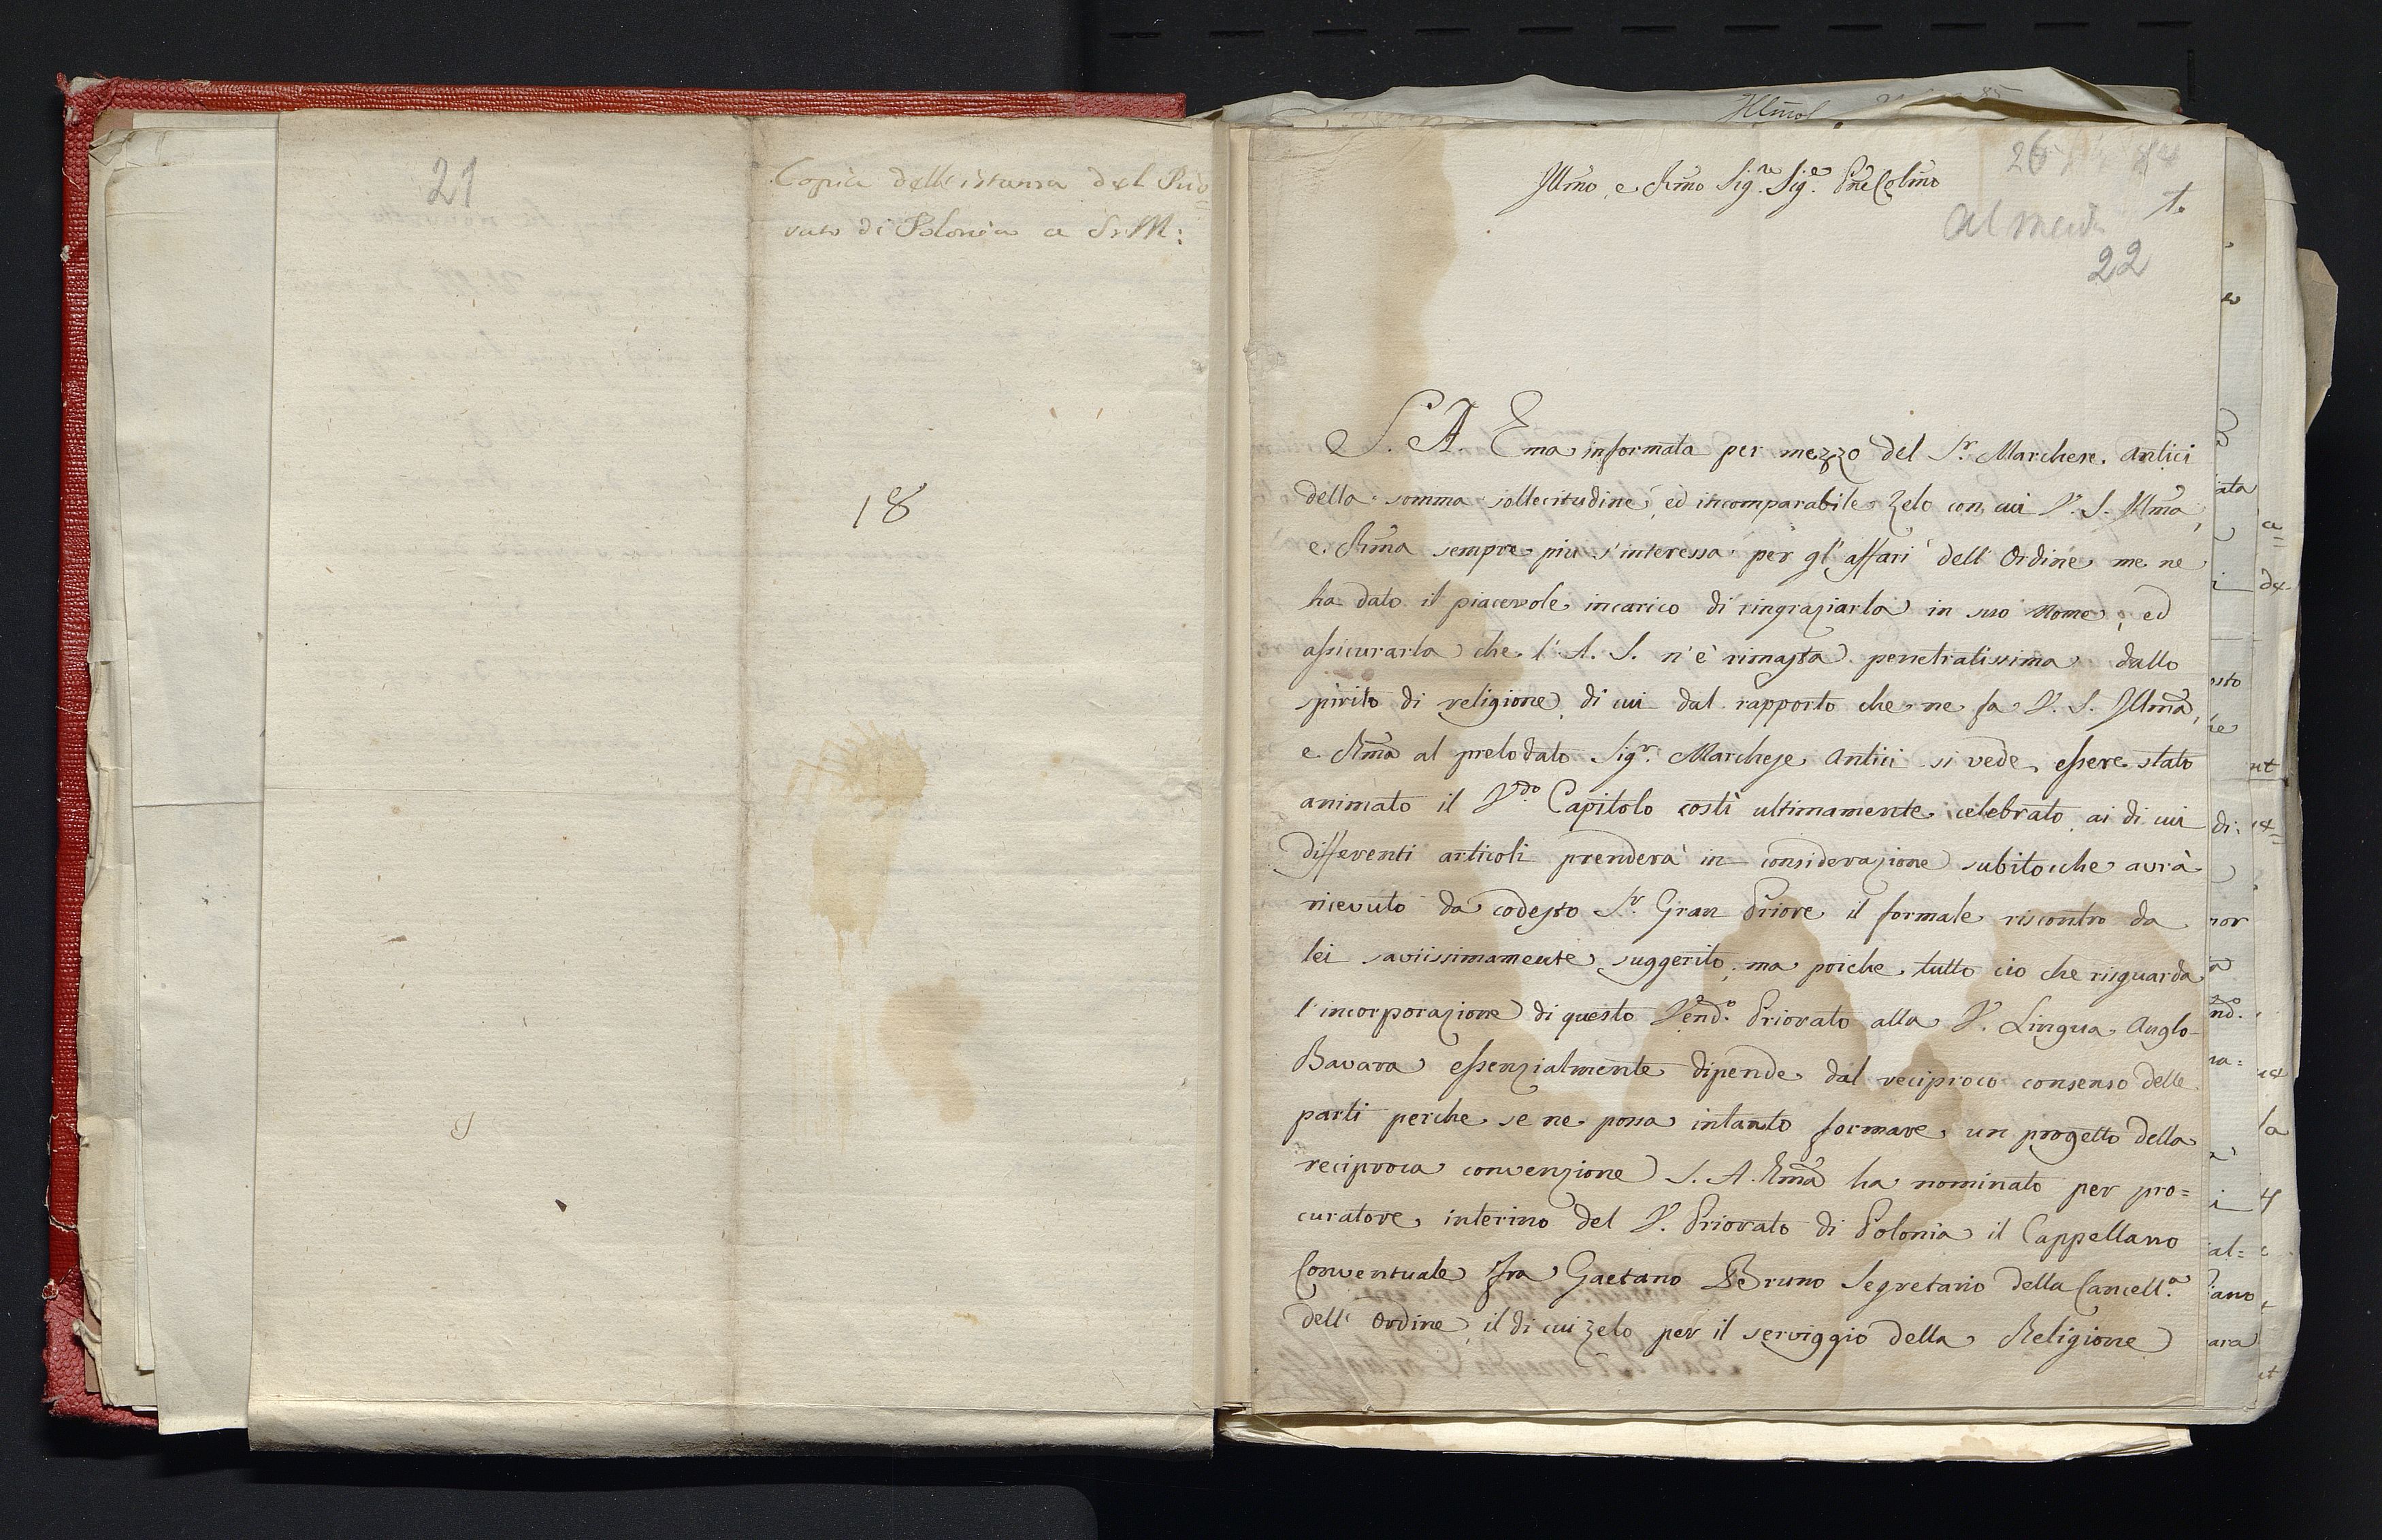 21
Copia dell'istanza del Prio=
rato di Polonia a S. M:
18
Illmo, e Rmo Sig.re Sig.e Pne Colmo
26
22
S. A. Ema informata per mezzo del S.r Marchese Antici
della somma sollecitudine, ed incomparabile zelo con cui V. S. Illma,
e Rma sempre piu s'interessa per gl'affari dell'Ordine me ne
ha dato il piacevole incarico di ringraziarla in suo Nome, ed
assicurarla che l'A. S. n'è rimasta penetratissima dallo
spirito di religione, di cui dal rapporto che ne fa V. S. Illma,
e Rma al prelodato Sig.r Marchese Antici si vede essere stato
animato il V.do Capitolo costì ultimamente celebrato, ai di cui
differenti articoli prenderà in considerazione subitocche avrà
ricevuto da codesto S.r Gran Priore il formale riscontro da
lei saviissimamente suggerito; ma poiche tutto cio che risguarda
l'incorporazione di questo Vend.o Priorato alla V. Lingua Anglo-
Bavara essenzialmente dipende dal reciproco consenso delle
parti perche se ne possa intanto formare un progetto della
reciproca convenzione S. A. Ema ha nominato per pro=
curatore interino del V. Priorato di Polonia il Cappellano
Conventuale Fra Gaetano Bruno Segretario della Cancell.a
dell'Ordine, il di cui zelo per il serviggio della Religione